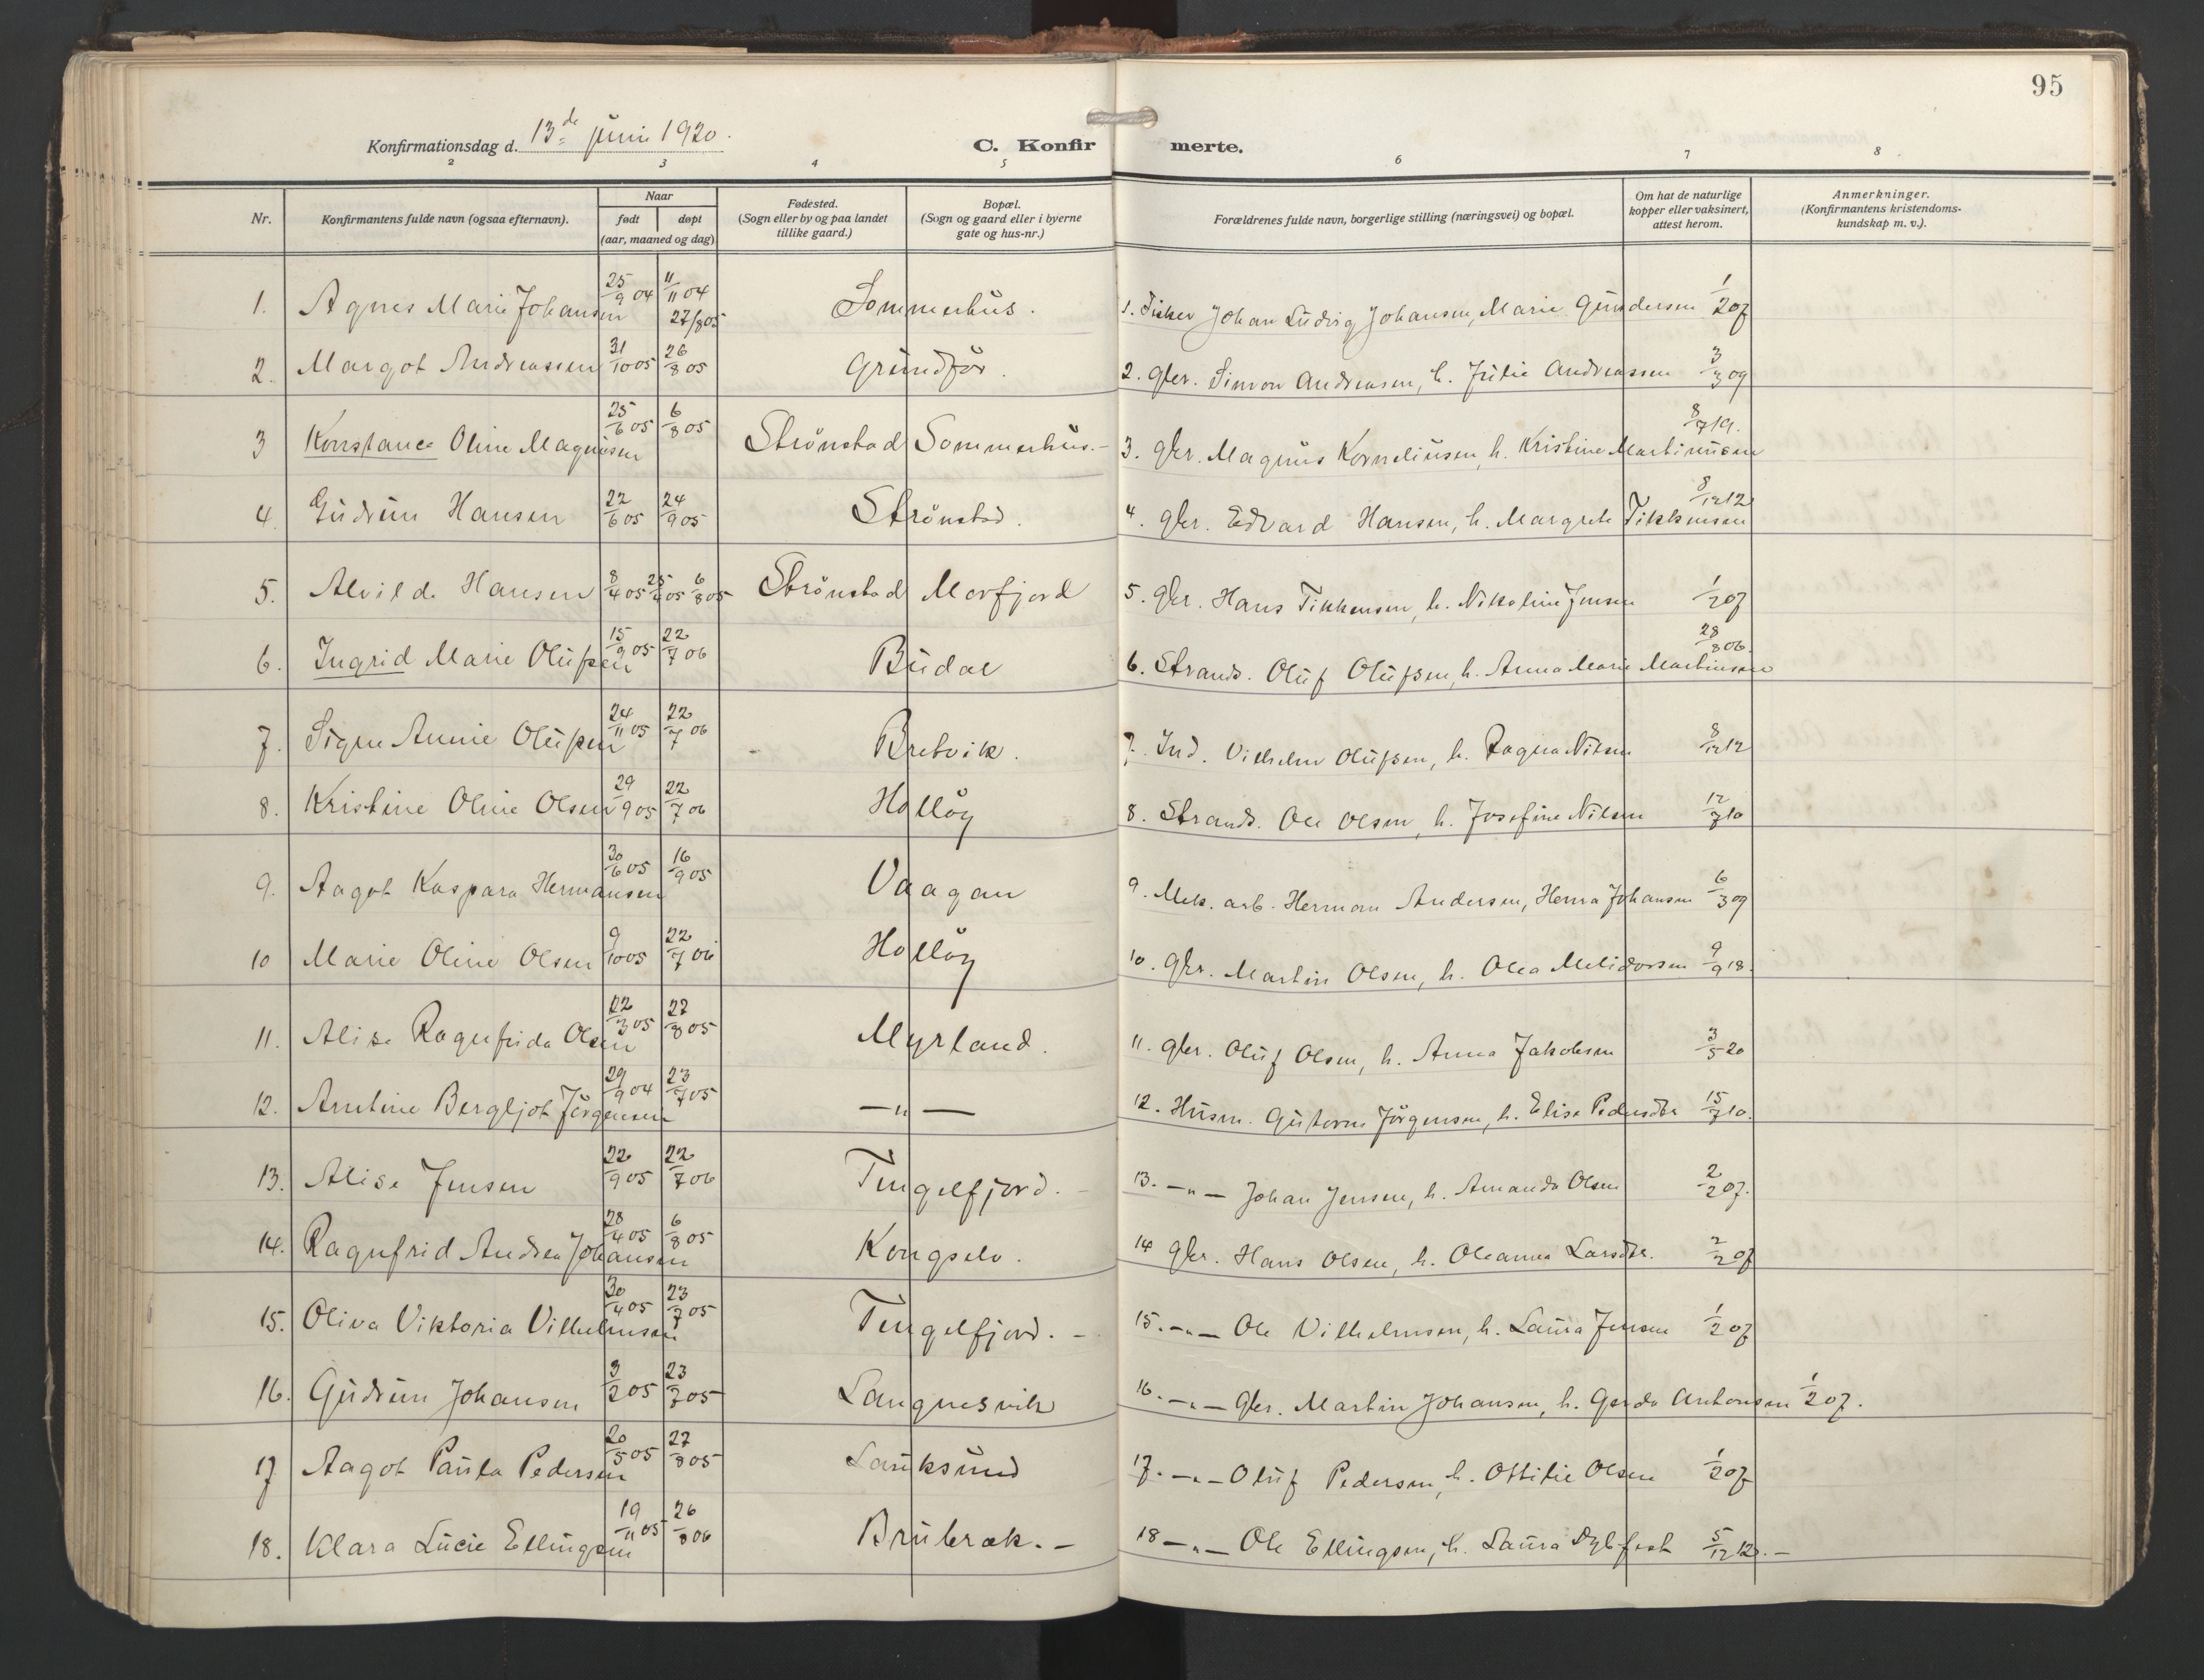 95
Konfirmationsdag d. 13de juni 1920.
C. Konfirmerte.
2 3 4 5 6 7 8
Nr. Konfirmantens fulde navn (ogsaa efternavn). Naar født døpt (aar, maaned og dag) Fødested. (Sogn eller by og paa landet tillike gaard.) Bopæl. (Sogn og gaard eller i byerne gate og hus-nr.) Forældrenes fulde navn, borgerlige stilling (næringsvei) og bopæl. Om hat de naturlige kopper eller vaksinert, attest herom. Anmerkninger. (Konfirmantens kristendoms-kundskap m. v.).
1. Agnes Marie Johansen 25/9 04 11/11 04 27/8 05 Sommerhus. 1. Fisker Johan Ludvig Johansen, Marie Gundersen 1/2 07
2. Margot Andreassen 31/10 05 26/8 05 Grundfør. 2. gbr. Simon Andreasen, h. Julie Andreassen 3/3 09
3 Konstance Oline Magnusen 25/6 05 6/8 05 Strønstad Sommerhus.- 3. gbr. Magnus Korneliusen, h. Kristine Martinusen 8/7 19.
4. Gudrun Hansen 22/6 05 24/9 05 Strønstad. 4. gbr. Edvard Hansen, h. Margrete Tikkensen 8/12 12
5. Alvilde Hansen 8/4 05 25/4 05 6/8 05 Strønstad Morfjord 5. gbr. Hans Tikkensen, h. Nikoline Jensen 1/2 07
6. Ingrid Marie Olufsen 15/9 05 22/7 06 Budal 6. Strands. Oluf Olufsen, h. Anna Marie Martinsen 28/8 06.
7. Signe Annie Olufsen 24/11 05 22/7 06 Bretvik. 7. Ind. Vilhelm Olufsen, h. Ragna Nilsen 8/12 12
8. Kristine Oline Olsen 29/9 05 22/7 06 Holløy 8. Strands. Ole Olsen, h. Josefine Nilsen 12/7 10
9. Aagot Kaspara Hermansen 30/6 05 16/9 05 Vaagan 9. Mek. arb. Herman Andersen, Herna Johansen 6/3 09
10 Marie Oline Olsen 9/10 05 22/7 06 Holløy 10. gbr. Martin Olsen, h. Olea Melidorsen 9/9 18.
11. Alise Ragnfrida Olsen 22/3 05 27/8 05 Myrland. 11. gbr. Oluf Olsen, h. Anna Jakobsen 3/5 20
12. Arntine Bergljot Jørgensen 29/9 04 23/7 05 —"— 12. Husm. Gustorm Jørgensen, h. Elise Pedersdtr 15/7 10.
13. Alise Jensen 22/9 05 22/7 06 Tengelfjord.- 13. —"— Johan Jensen, h. Amanda Olsen 2/2 07.
14. Ragnfrid Andrea Johansen 28/4 05 6/8 05 Kongselv. 14 gbr. Hans Olsen, h. Oleanna Larsdtr. 2/2 07
15. Oliva Viktoria Vilhelmsen 30/4 05 23/7 05 Tengelfjord. - 15. —"— Ole Vilhelmsen, h. Laura Jensen 1/2 07
16. Gudrun Johansen 3/2 05 23/7 05 Langnesvik 16. —"— Gbr. Martin Johansen, h. Gerda Antonsen 1/2 07.
17 Aagot Paula Pedersen 20/5 05 27/8 05 Lauksund 17. —"— Oluf Pedersen, h. Ottilie Olsen 1/2 07
18. Klara Lucie Ellingsen 19/11 05 26/8 06 Brubræk. - 18 —"— Ole Ellingsen, h. Laura Dybfest 5/12 12. -